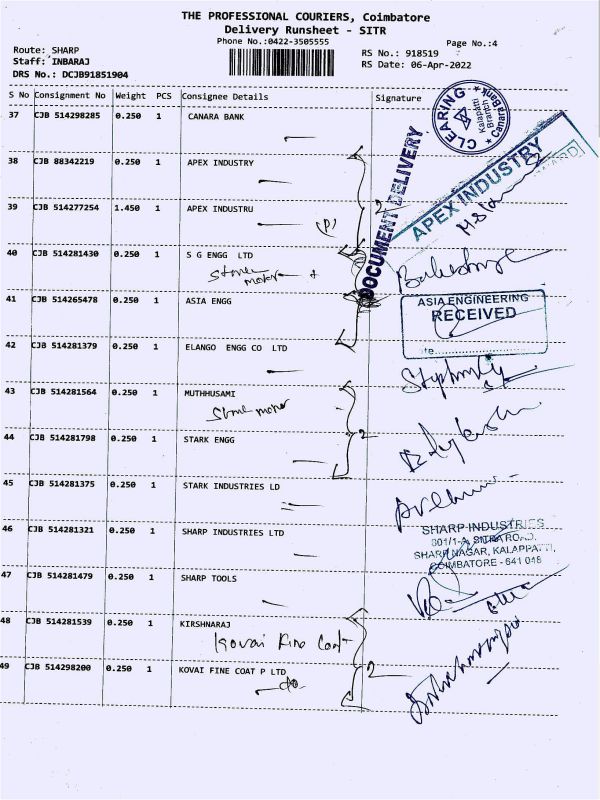 THE PROFESSIONAL COURIERS, Coimbatore
Delivery Runsheet - SITR
Phone No.:0422-3505555
Page No.:4
Route: SHARP
RS No.: 918519
Staff: INBARAJ
RS Date: 06-Apr-2022
DRS No.: DCJB91851904
S No Consignment No Weight PCS Consignee Details Signature
37 CJB 514298285 0.250 1 CANARA BANK
CLEARING
Kalapatti
Branch
Canara Bank
38 CJB 88342219 0.250 1 APEX INDUSTRY
DOCUMENT DELIVERY
APEX INDUSTRY
39 CJB 514277254 1.450 1 APEX INDUSTRU
2
(P)
40 CJB 514281430 0.250 1 S G ENGG LTD
Stone
motor
41 CJB 514265478 0.250 1 ASIA ENGG
ASIA ENGINEERING
RECEIVED
42 CJB 514281379 0.250 1 ELANGO ENGG CO LTD
43 CJB 514281564 0.250 1 MUTHHUSAMI
Stone motor
44 CJB 514281798 0.250 1 STARK ENGG
2
45 CJB 514281375 0.250 1 STARK INDUSTRIES LD
46 CJB 514281321 0.250 1 SHARP INDUSTRIES LTD
SHARP INDUSTRIES
801/1-A, SITRA ROAD.
SHARP NAGAR, KALAPPATTI,
COIMBATORE - 641 048
47 CJB 514281479 0.250 1 SHARP TOOLS
48 CJB 514281539 0.250 1 KIRSHNARAJ
Kovai Fine Coat
49 CJB 514298200 0.250 1 KOVAI FINE COAT P LTD
2
do